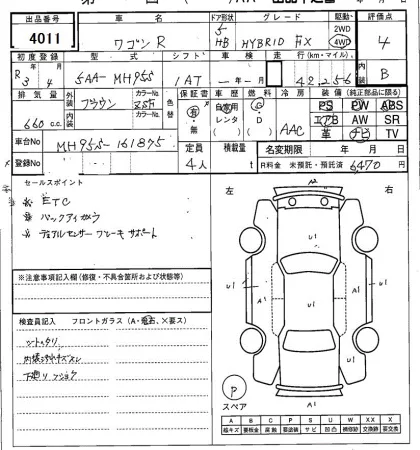 出品番号 車名 ドア形状 グレード 駆動 評価点
4011 ワゴンR 5 HB HYBRID FX 2WD 4WD 4
初度登録 型式 シフト 車検 走行(km・マイル) 内装
R3 4 5AA-MH95S IAT 年 月 42,256 B
排気量 外装 カラーNo. 色替 車歴 燃料 冷房 装備(純正部品に限る)
660 c.c. ブラウン ZSH 有・無 自家用 レンタ G AAC PS PW ABS
内装 カラーNo. エアB AW SR
革 ナビ TV
車台No. MH95S-161875 定員 積載量 名変期限 年 月 日
登録No. 4人 t R料金 未預託・預託済 6470 円
セールスポイント
ETC
バックアイカメラ
デュアルセンサーブレーキサポート
※注意事項記入欄(修復・不具合箇所および状態等)
検査員記入 フロントガラス(A・飛石、×要ス)
シートスリ
下廻りフショク
左 右
U1 U1 U1
A1 A1
U1 U1
A1
P
スペア
A1
A B C P S U W X XX
線キズ 要板金 腐触 要塗装 サビ 凹凸 補修跡 交換跡 要交換